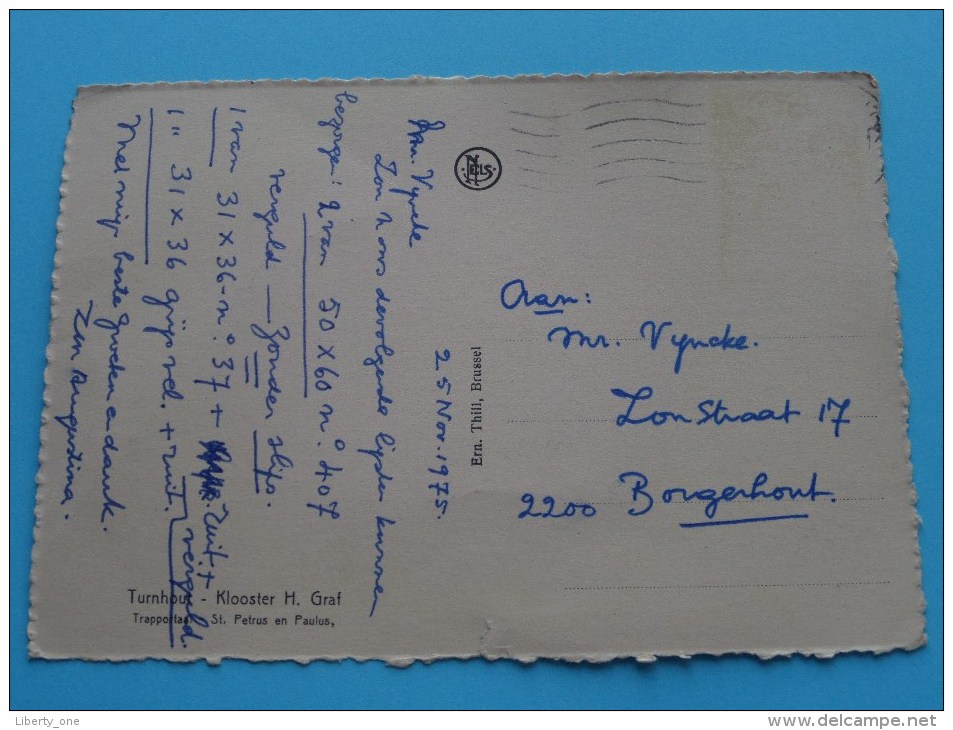 25 Nov. 1975.
Mr. Vyncke
Zou u ons de volgende lijsten kunnen
bezorgen: 2 van 50 x 60 n° 407
verguld — zonder slips.
1 van 31 x 36 - n° 37 + ruit. +
verguld.
1 " 31 x 36 grijs + ruit.
Met mijn beste groeten en dank.
Zr. Augustina.
Turnhout - Klooster H. Graf
Trapportaal St. Petrus en Paulus,
NELS
Ern. Thill, Brussel
Aan:
Mr. Vyncke.
Zonstraat 17
2200 Borgerhout.
Liberty_one
www.delcampe.net